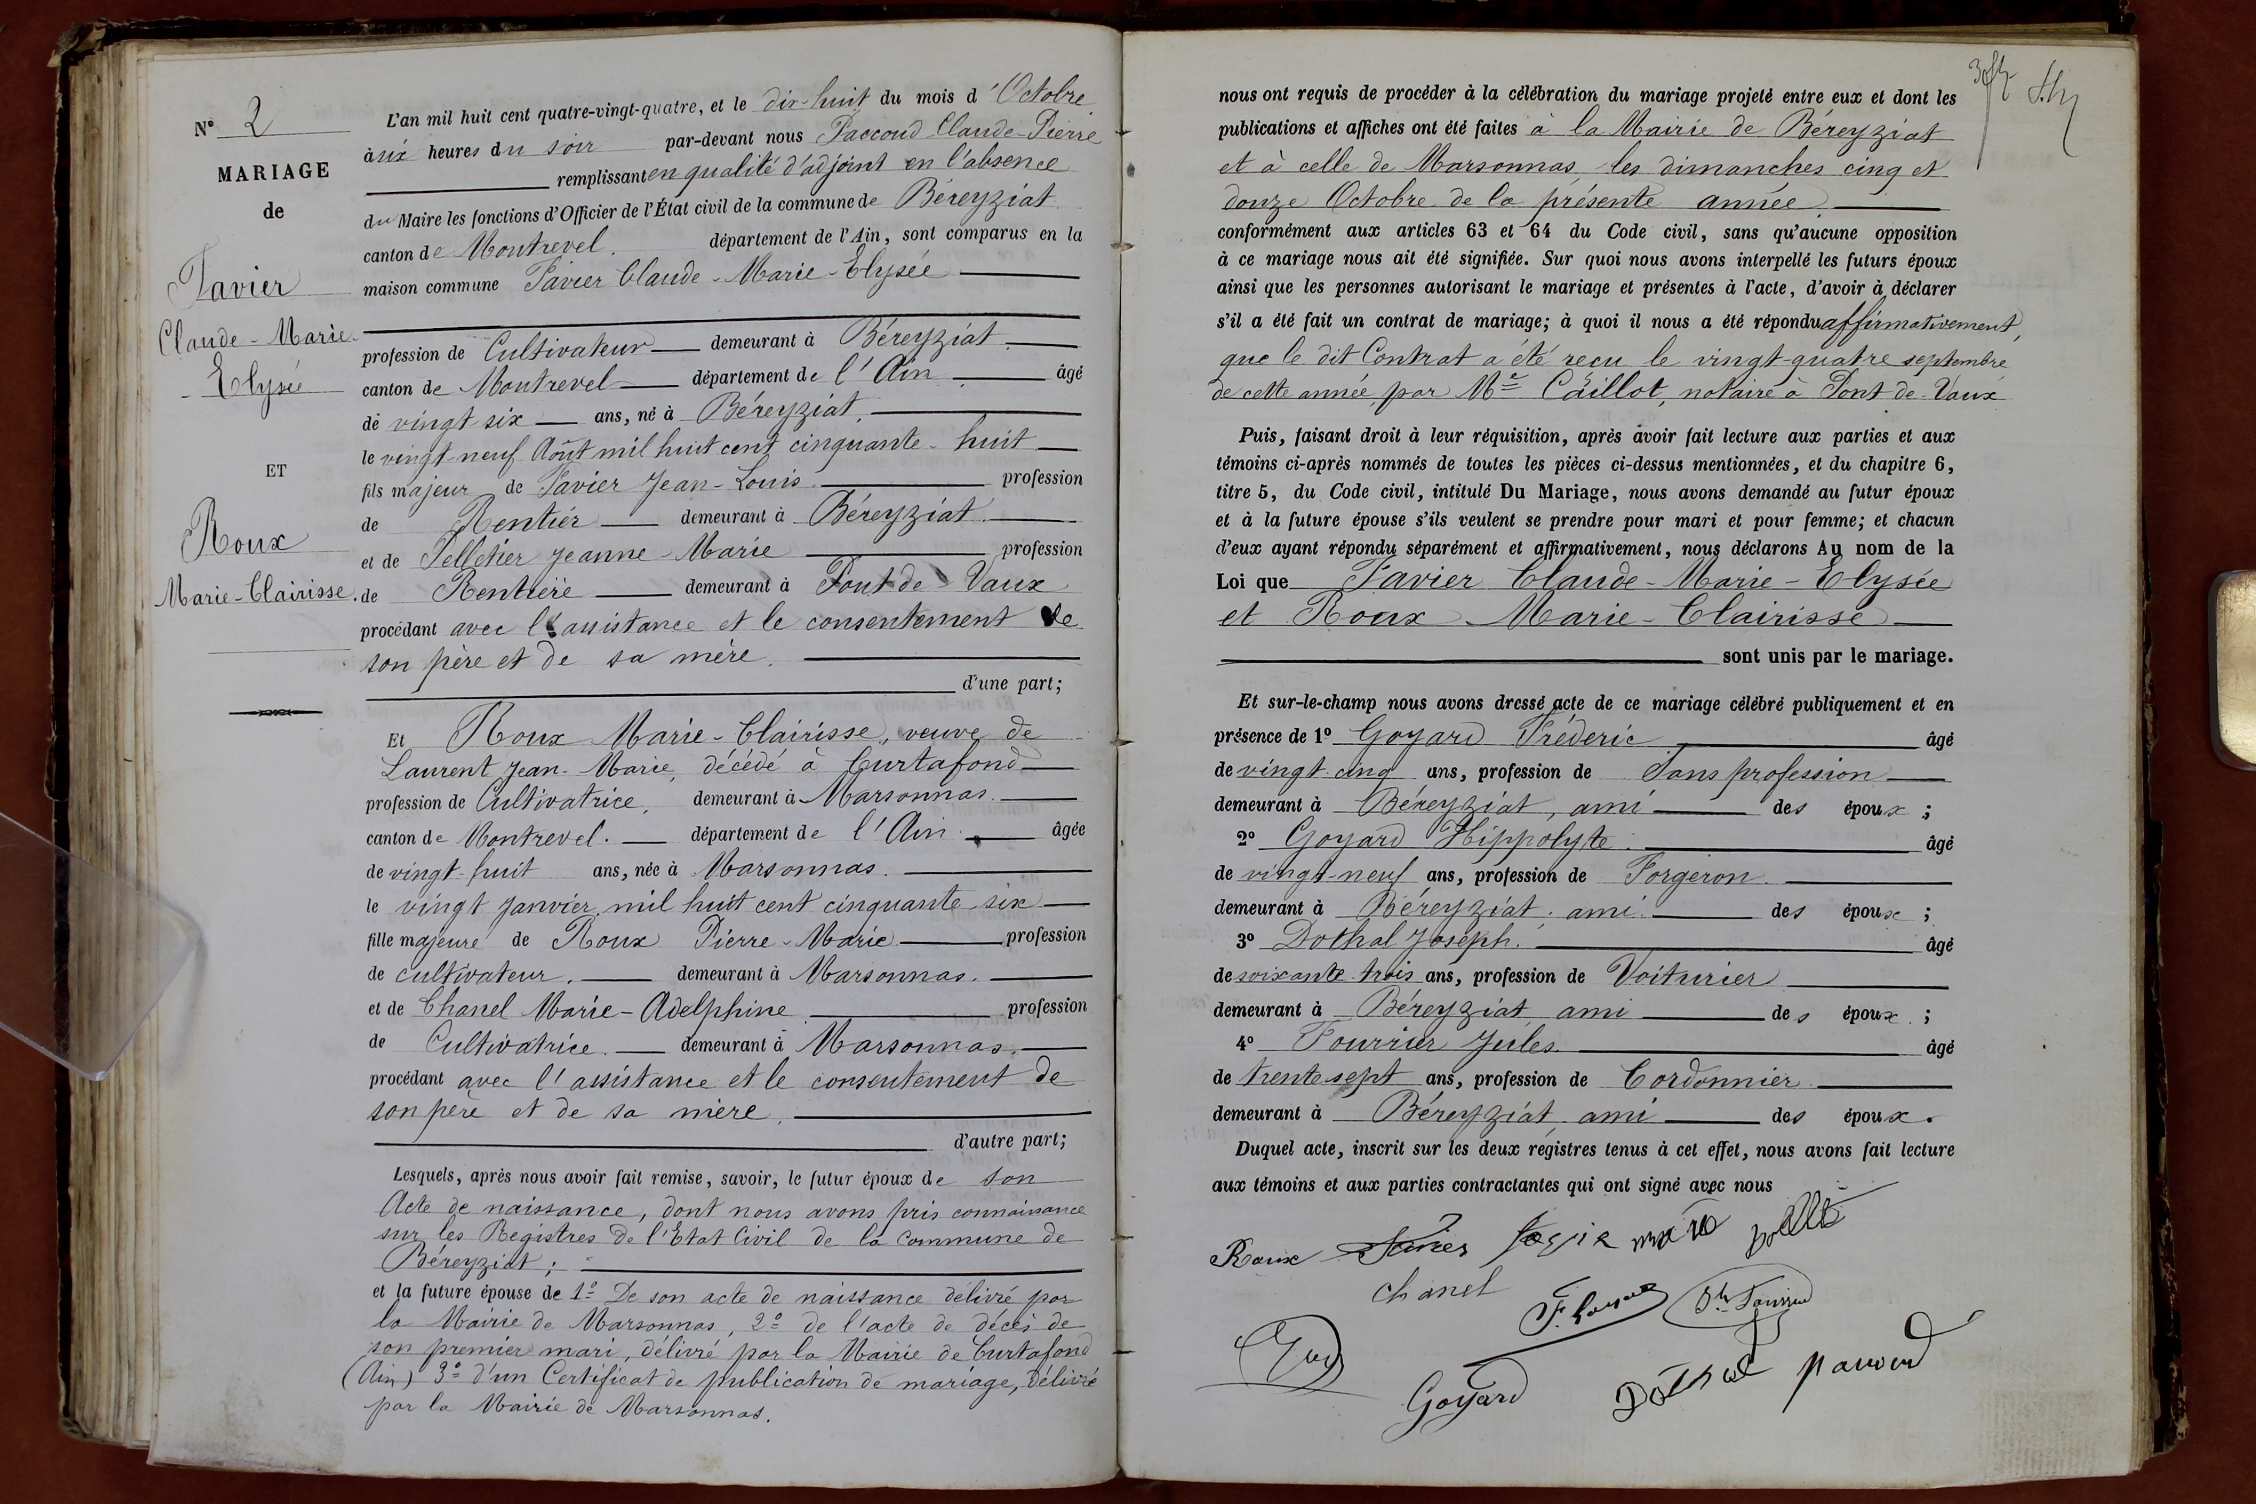 N° 2
MARIAGE
de
Favier
Claude-Marie-
Elysée
ET
Roux
Marie-Clairisse.
L'an mil huit cent quatre-vingt-quatre, et le dix-huit du mois d'Octobre
à six heures du soir par-devant nous Paccoud Claude-Pierre
remplissant en qualité d'adjoint en l'absence
du Maire les fonctions d'Officier de l'État civil de la commune de Béreyziat
canton de Montrevel. département de l'Ain, sont comparus en la
maison commune Favier Claude-Marie-Elysée
profession de Cultivateur demeurant à Béreyziat.
canton de Montrevel département de l'Ain âgé
de vingt six ans, né à Béreyziat.
le vingt-neuf Août mil huit cent cinquante-huit
fils majeur de Favier Jean-Louis profession
de Rentier demeurant à Béreyziat.
et de Pelletier Jeanne-Marie profession
de Rentière demeurant à Pont de Vaux
procédant avec l'assistance et le consentement de
son père et de sa mère.
d'une part;
Et Roux Marie-Clairisse, veuve de
Laurent Jean-Marie, décédé à Curtafond
profession de Cultivatrice, demeurant à Marsonnas.
canton de Montrevel. département de l'Ain. âgée
de vingt-huit ans, née à Marsonnas.
le vingt Janvier mil huit cent cinquante six
fille majeure de Roux Pierre-Marie profession
de cultivateur. demeurant à Marsonnas.
et de Chanel Marie-Adelphine profession
de Cultivatrice. demeurant à Marsonnas.
procédant avec l'assistance et le consentement de
son père et de sa mère.
d'autre part;
Lesquels, après nous avoir fait remise, savoir, le futur époux de son
Acte de naissance, dont nous avons pris connaissance
sur les Registres de l'Etat Civil de la Commune de
Béreyziat;
et la future épouse de 1° De son acte de naissance délivré par
la Mairie de Marsonnas, 2° de l'acte de décès de
son premier mari, délivré par la Mairie de Curtafond
(Ain) 3° d'un Certificat de publication de mariage, délivré
par la Mairie de Marsonnas.
nous ont requis de procéder à la célébration du mariage projeté entre eux et dont les
publications et affiches ont été faites à la Mairie de Béreyziat
et à celle de Marsonnas les dimanches cinq et
douze Octobre de la présente année.
conformément aux articles 63 et 64 du Code civil, sans qu'aucune opposition
à ce mariage nous ait été signifiée. Sur quoi nous avons interpellé les futurs époux
ainsi que les personnes autorisant le mariage et présentes à l'acte, d'avoir à déclarer
s'il a été fait un contrat de mariage; à quoi il nous a été répondu affirmativement,
que le dit Contrat a été reçu le vingt-quatre septembre
de cette année, par Me Caillot, notaire à Pont de Vaux
Puis, faisant droit à leur réquisition, après avoir fait lecture aux parties et aux
témoins ci-après nommés de toutes les pièces ci-dessus mentionnées, et du chapitre 6,
titre 5, du Code civil, intitulé Du Mariage, nous avons demandé au futur époux
et à la future épouse s'ils veulent se prendre pour mari et pour femme; et chacun
d'eux ayant répondu séparément et affirmativement, nous déclarons Au nom de la
Loi que Favier Claude-Marie-Elysée
et Roux Marie-Clairisse
sont unis par le mariage.
Et sur-le-champ nous avons dressé acte de ce mariage célébré publiquement et en
présence de 1° Goyard Fréderic âgé
de vingt-cinq ans, profession de Sans profession
demeurant à Béreyziat, ami des époux;
2° Goyard Hippolyte. âgé
de vingt-neuf ans, profession de Forgeron.
demeurant à Béreyziat. ami. des époux;
3° Dothal Joseph. âgé
de soixante-trois ans, profession de Voiturier
demeurant à Béreyziat, ami des époux;
4° Fourrier Jules. âgé
de trente sept ans, profession de Cordonnier.
demeurant à Béreyziat, ami des époux.
Duquel acte, inscrit sur les deux régistres tenus à cet effet, nous avons fait lecture
aux témoins et aux parties contractantes qui ont signé avec nous
Roux
chanel
Goyard Dothal paccoud